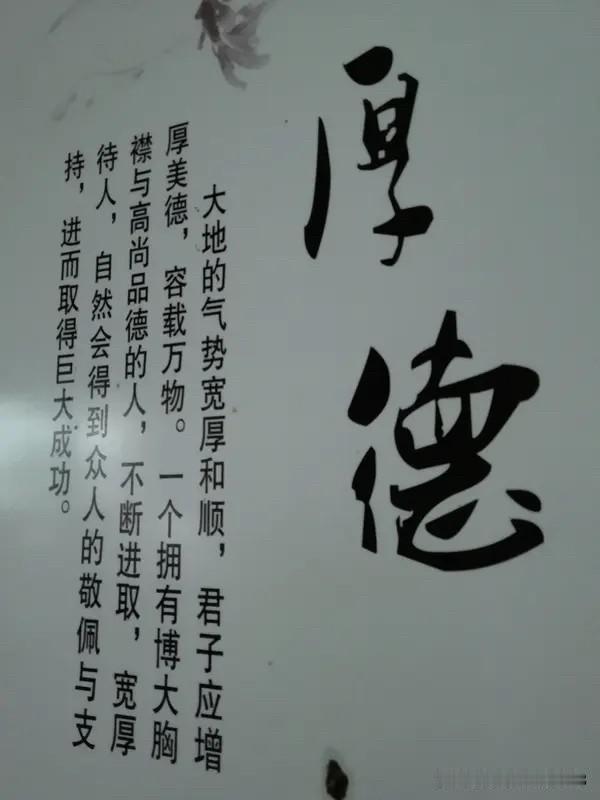 厚德
大地的气势宽厚和顺，君子应增
厚美德，容载万物。一个拥有博大胸
襟与高尚品德的人，不断进取，宽厚
待人，自然会得到众人的敬佩与支
持，进而取得巨大成功。